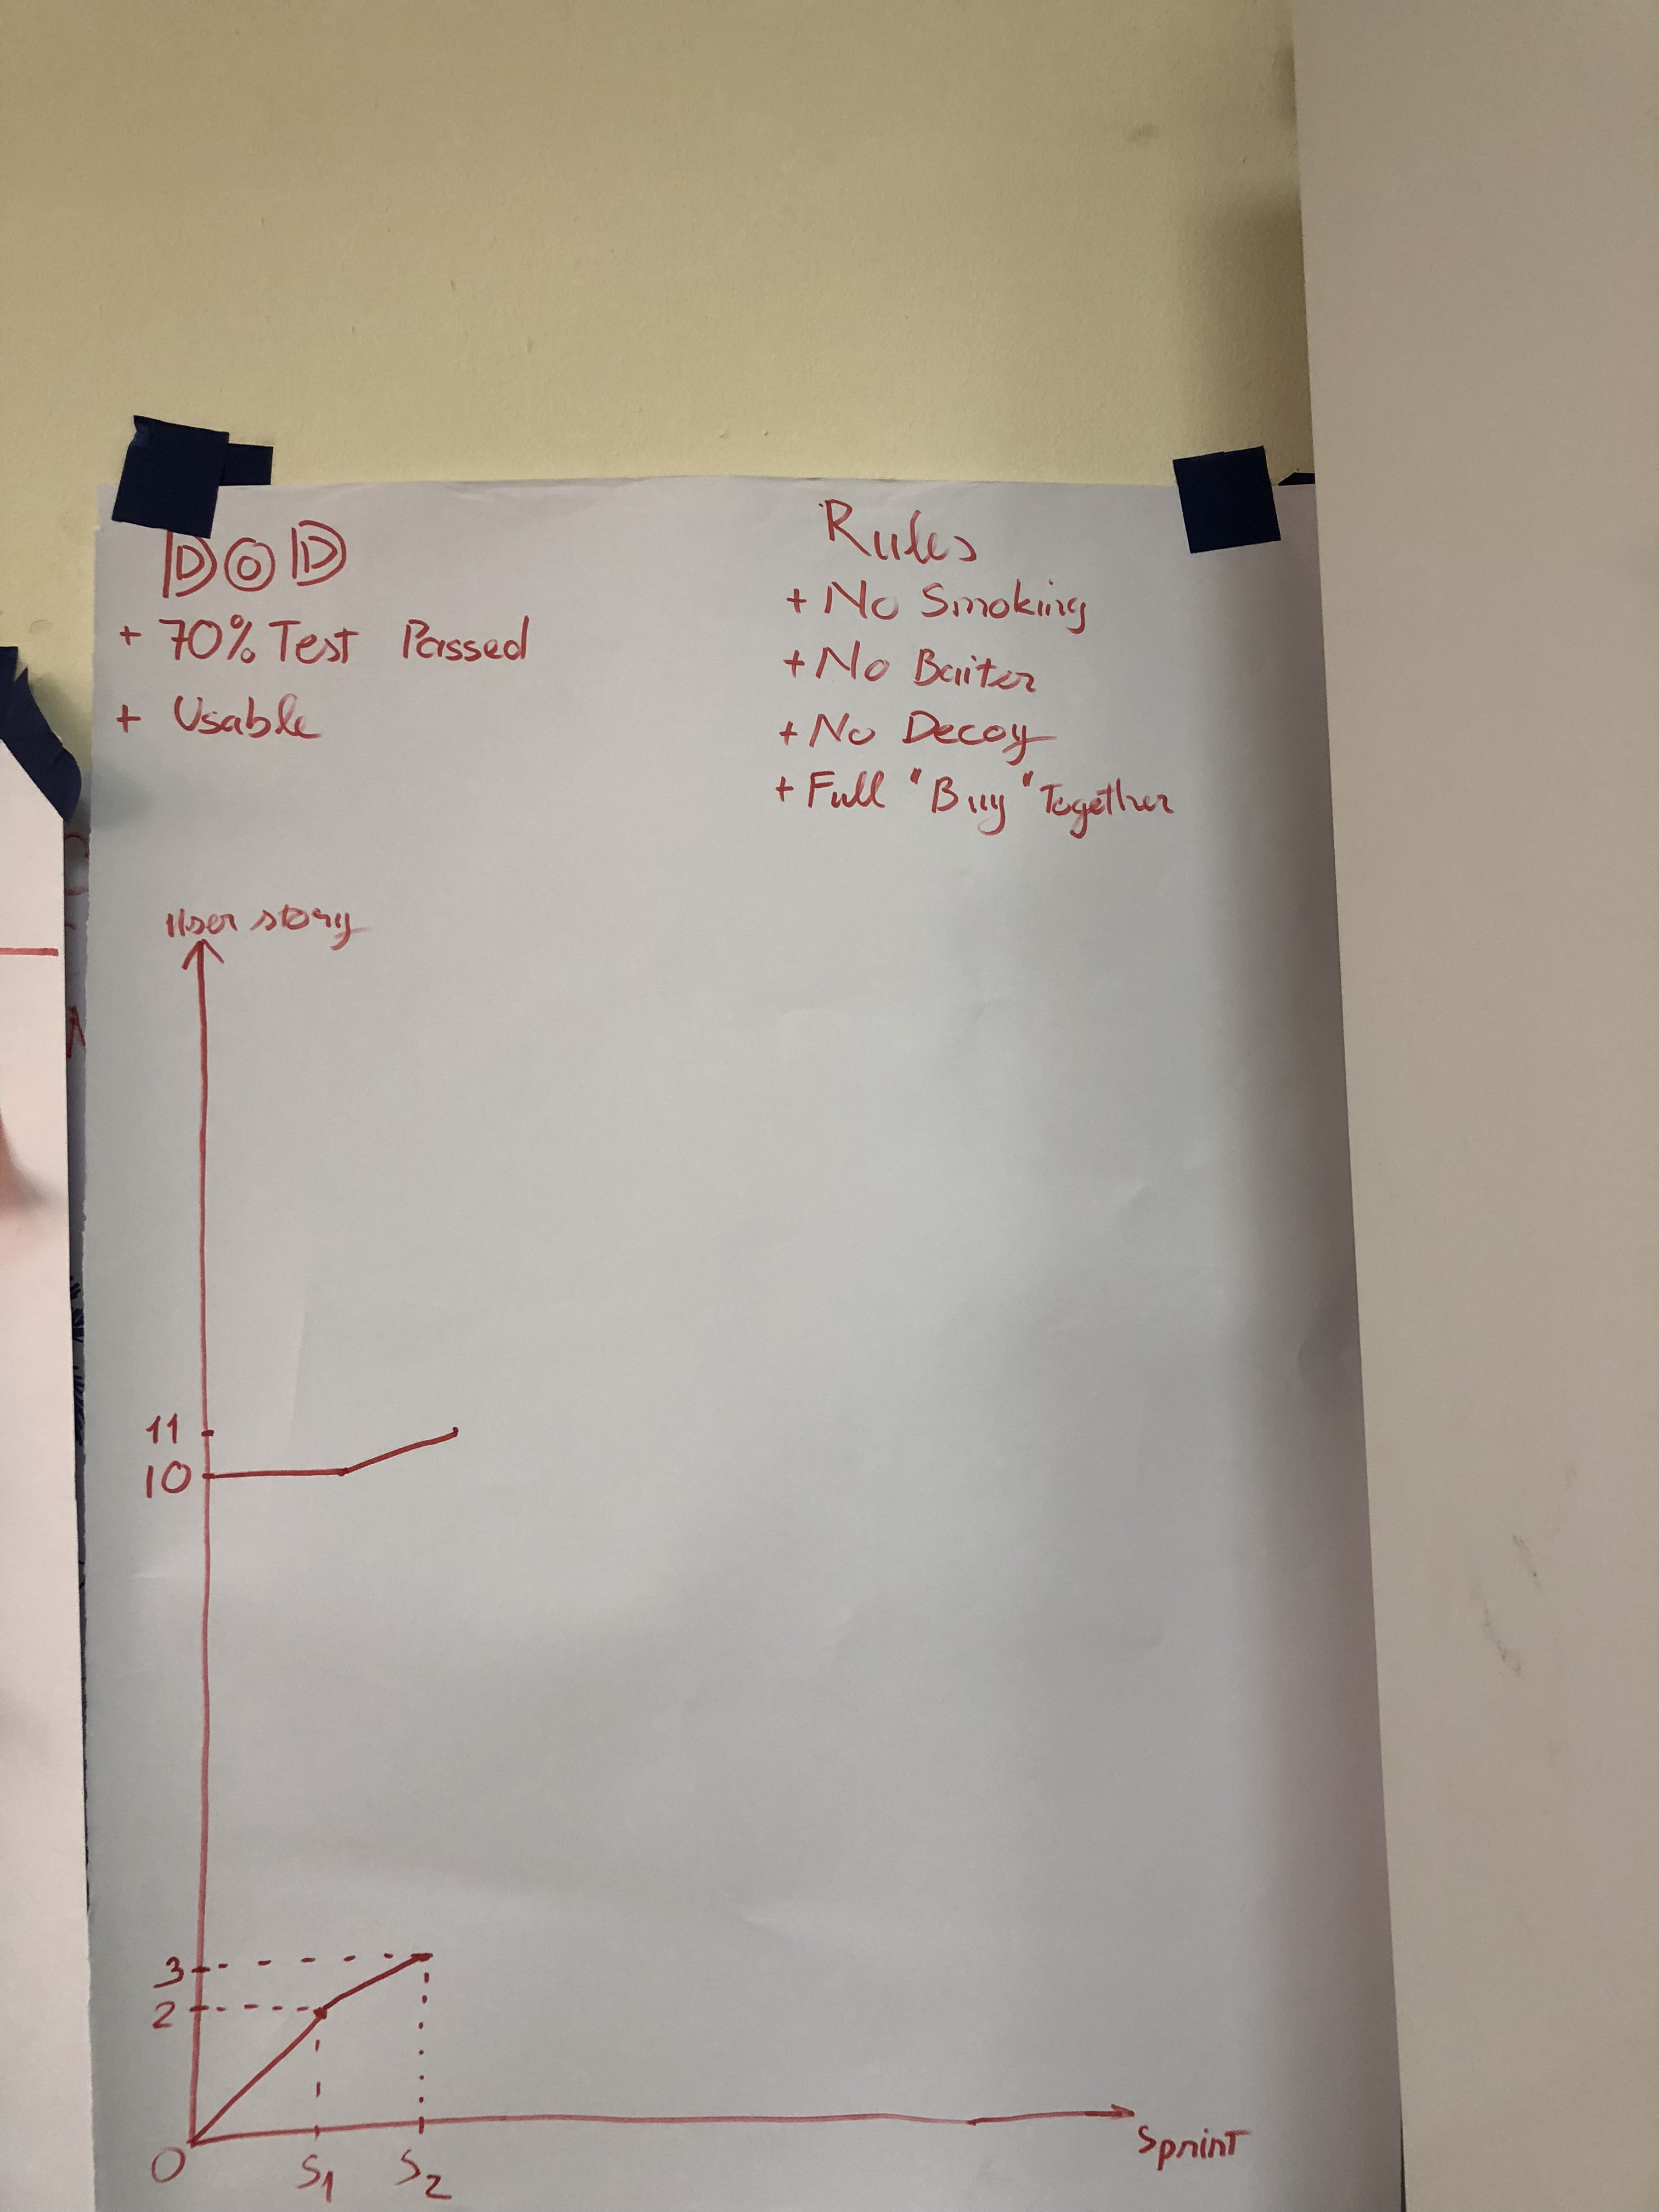 DOD
+ 70% Test Passed
+ Usable
Rules
+ No Smoking
+ No Baiter
+ No Decoy
+ Full "Buy" Together
User story
11
10
3
2
0
S1
S2
Sprint